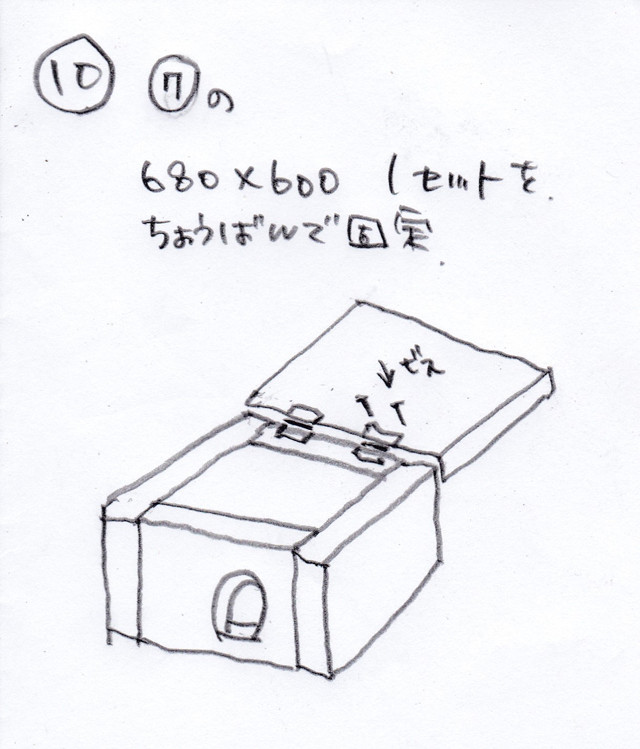 ⑩ ⑦の
680×600 1セットを
ちょうばんで固定
ビス